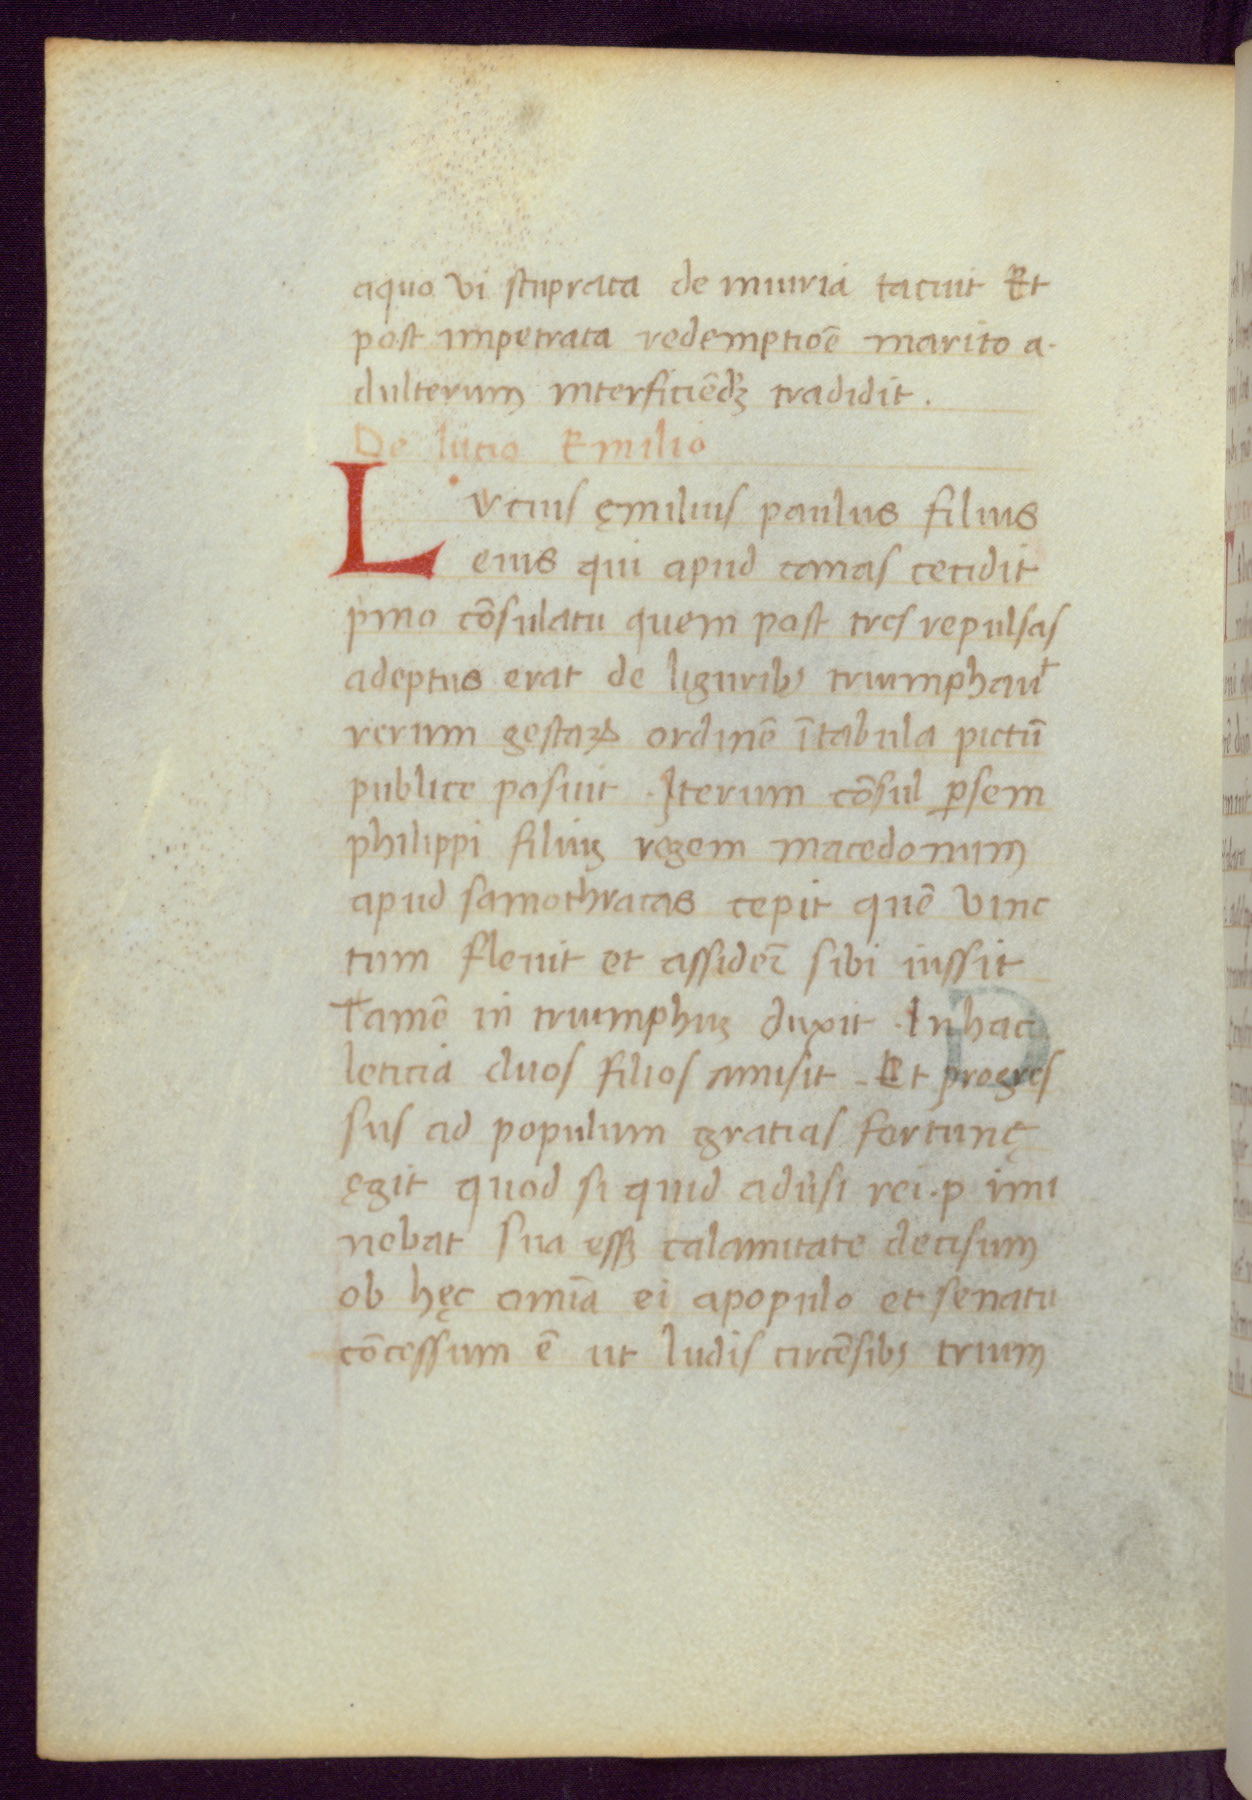 aquo vi stuprata de iniuria tacuit Et
post impetrata redemptiōē marito a-
dulterum interficiēdꝫ tradidit.
De lucio Emilio
Lucius ęmilius paulus filius
eius qui apud canas cecidit
pͥmo cōsulatu quem post tres repulsas
adeptus erat de liguribꝫ triumphauᵗ
rerum gestaꝝ ordinē ītabula pictū
publice posuit. Iterum cōsul ꝑsem
philippi filiuꝫ regem macedonum
apud samothracas cepit quē vinc
tum fleuit et assiderͤ sibi iussit
Tamē in triumphuꝫ duxit. Inhac
leticia duos filios amisit. Et progres
sus ad populum gratias fortunę
ęgit quod si quid adūsi rei.p imi
nebat sua essꝫ calamitate decisum
ob hęc omīa ei apopulo et senatu
cōcessum ē ut ludis circēsibꝫ trium